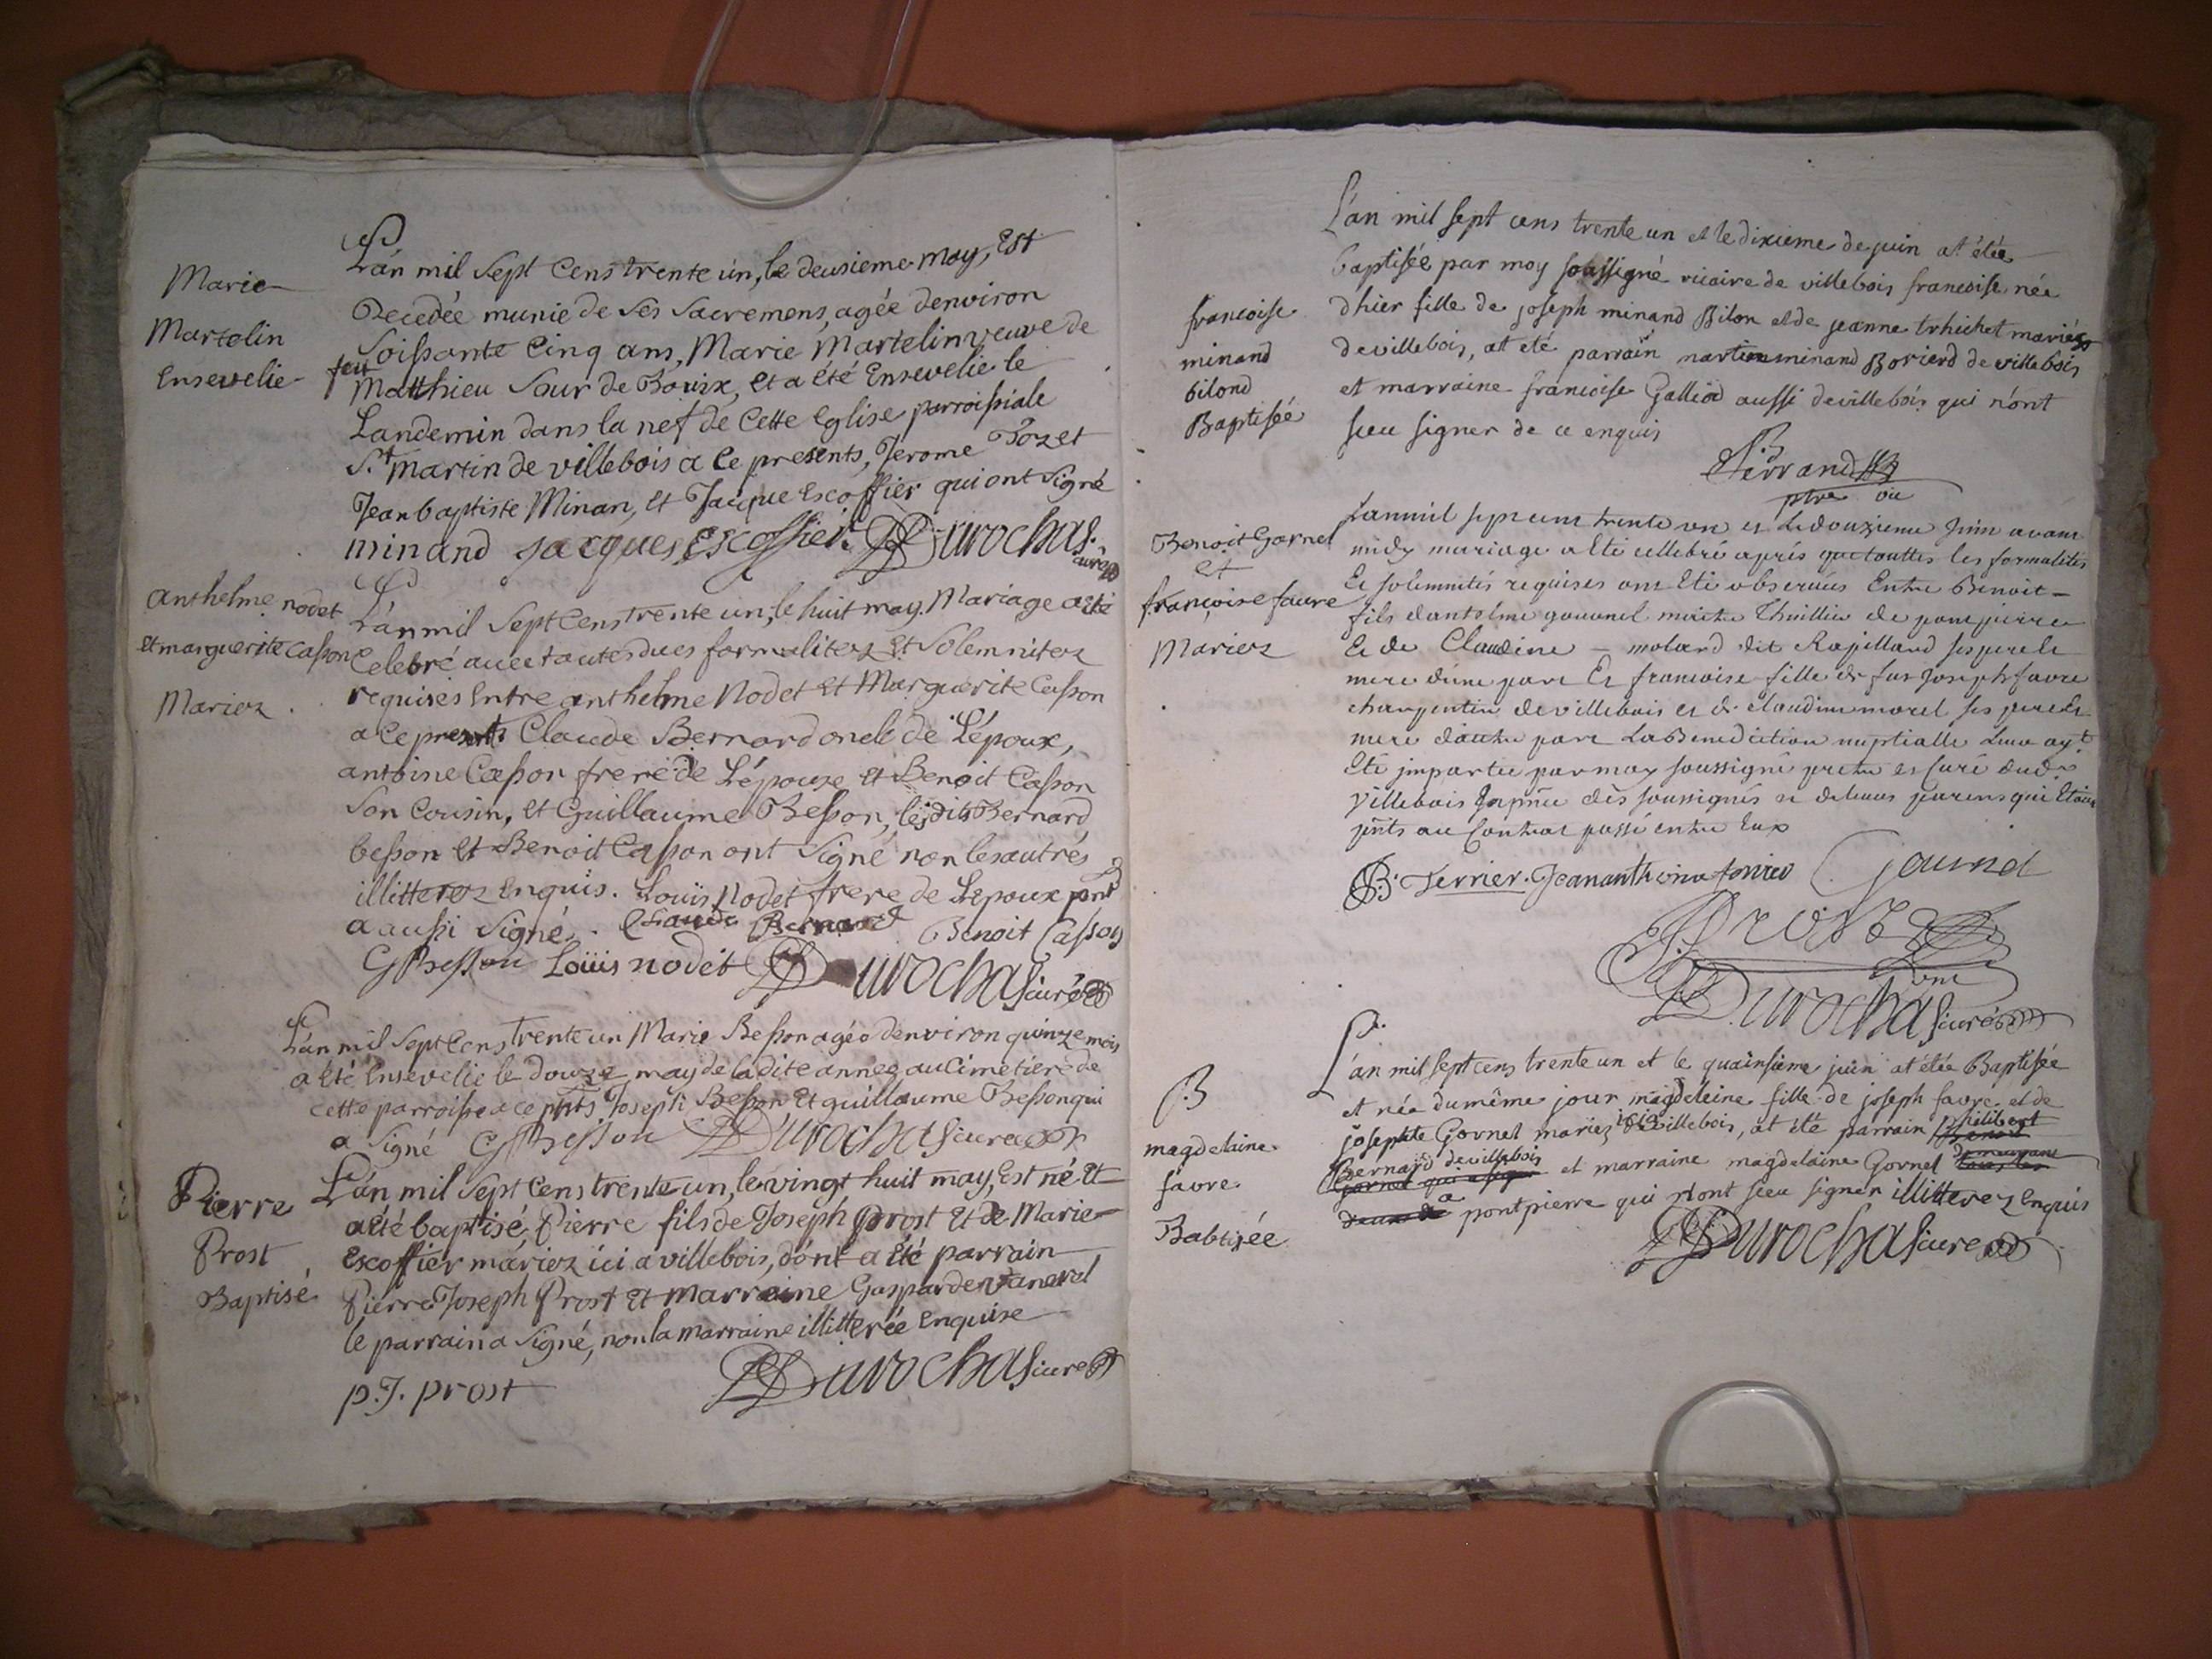 Marie
Martelin
Ensevelie
L'an mil sept cens trente ún, le deusieme may, Est
Decedée munie de ses sacremens, agée denviron
soissante cinq ans, Marie Martelin veuve de
feu Matthieu de Bouix, et a été Ensevelie le
Landemin dans la nef de Cette Eglise parroissiale
St Martin de villebois a ce presents, Jerome Pozet
Jean baptiste Minan, Et Jacque Escoffier qui ont signé
minand jacques Escoffier Durochas curé
Anthelme nodet
et marguerite Casson
Mariez
L'an mil sept cens trente un, le huit may, Mariage a été
Celebré avec toutes dues formalitez et Solemnitez
requises Entre anthelme Nodet et Marguerite Casson
a ce presents Claude Bernard oncle de L'époux,
antoine Casson frere de L'épouze et Benoit Casson
son cousin, et Guillaume Besson, lesdits Bernard
besson et Benoit Casson ont signé non les autres
illitterez enquis. Louïs Nodet frere de L'epoux pnt
a aussi signé. Claude Bernard Benoit Casson
G Besson Loüis nodet Durochas curé
L'an mil sept cens trente un Marie Besson agée denviron quinze mois
a eté Ensevelie le douze may de ladite année au Cimetiere de
cette parroisse a ce pnts Joseph Besson et guillaume Besson qui
a signé G Besson Durochas curé
Pierre
Prost
Baptisé
L'an mil sept cens trente un, le vingt huit may, Est né et
a été baptisé, Pierre fils de Joseph Prost et de Marie
Escoffier mariez ici a villebois, dont a été parrain
Pierre Joseph Prost et marraine Gasparde
le parrain a signé, non la marraine illitterée Enquise
p. J. prost Durochas curé
francoise
minand
bilond
Baptisée
L'an mil sept cens trente un et le dixieme de juin at étée
baptisée par moy soussigné vicaire de villebois francoise née
dhier fille de joseph minand Bilon et de jeanne trhichet mariés
devillebois, at eté parrain martin minand Borierd de villebois
et marraine francoise Galliod aussi devillebois qui n'ont
sceu signer de ce enquis
Ferrand
ptre vic
Benoit Gornel
et
françoise faure
Mariez
Lan mil sept cent trente un et le douzieme Juin avant
midy mariage a Eté cellebré aprés que touttes les formalités
Et solemnités requises ont Eté observées Entre Benoit
fils dantelme gouvnel de pont pierre
Et de Claudine molard dit Rapillard ses pere et
mere d'une part Et francoise fille de fut Joseph favre
charpentier de villebois et de claudine morel ses pere et
mere d'autre part La Benediction nuptialle Leur ayt
Eté impartie par moy soussigné pretre et Curé dud
Villebois En pnce dès soussignés et de Leurs parens qui Etoient
pnts au Contrat passé entre Eux
B. Ferrier. Jean antheime G gournel
Prost
Durochas curé
B
magdelaine
favre
Babtizée
L'an mil sept cens trente un et le quainsiéme juin at étée Baptisée
et née du même jour magdeleine fille de joseph favre et de
josephte Gornel mariez ici à villebois, at été parrain philibert
Bernard de villebois et marraine magdelaine Gornel demeurant
a pontpierre qui n'ont sceu signer illitterez Enquis
Durochas curé